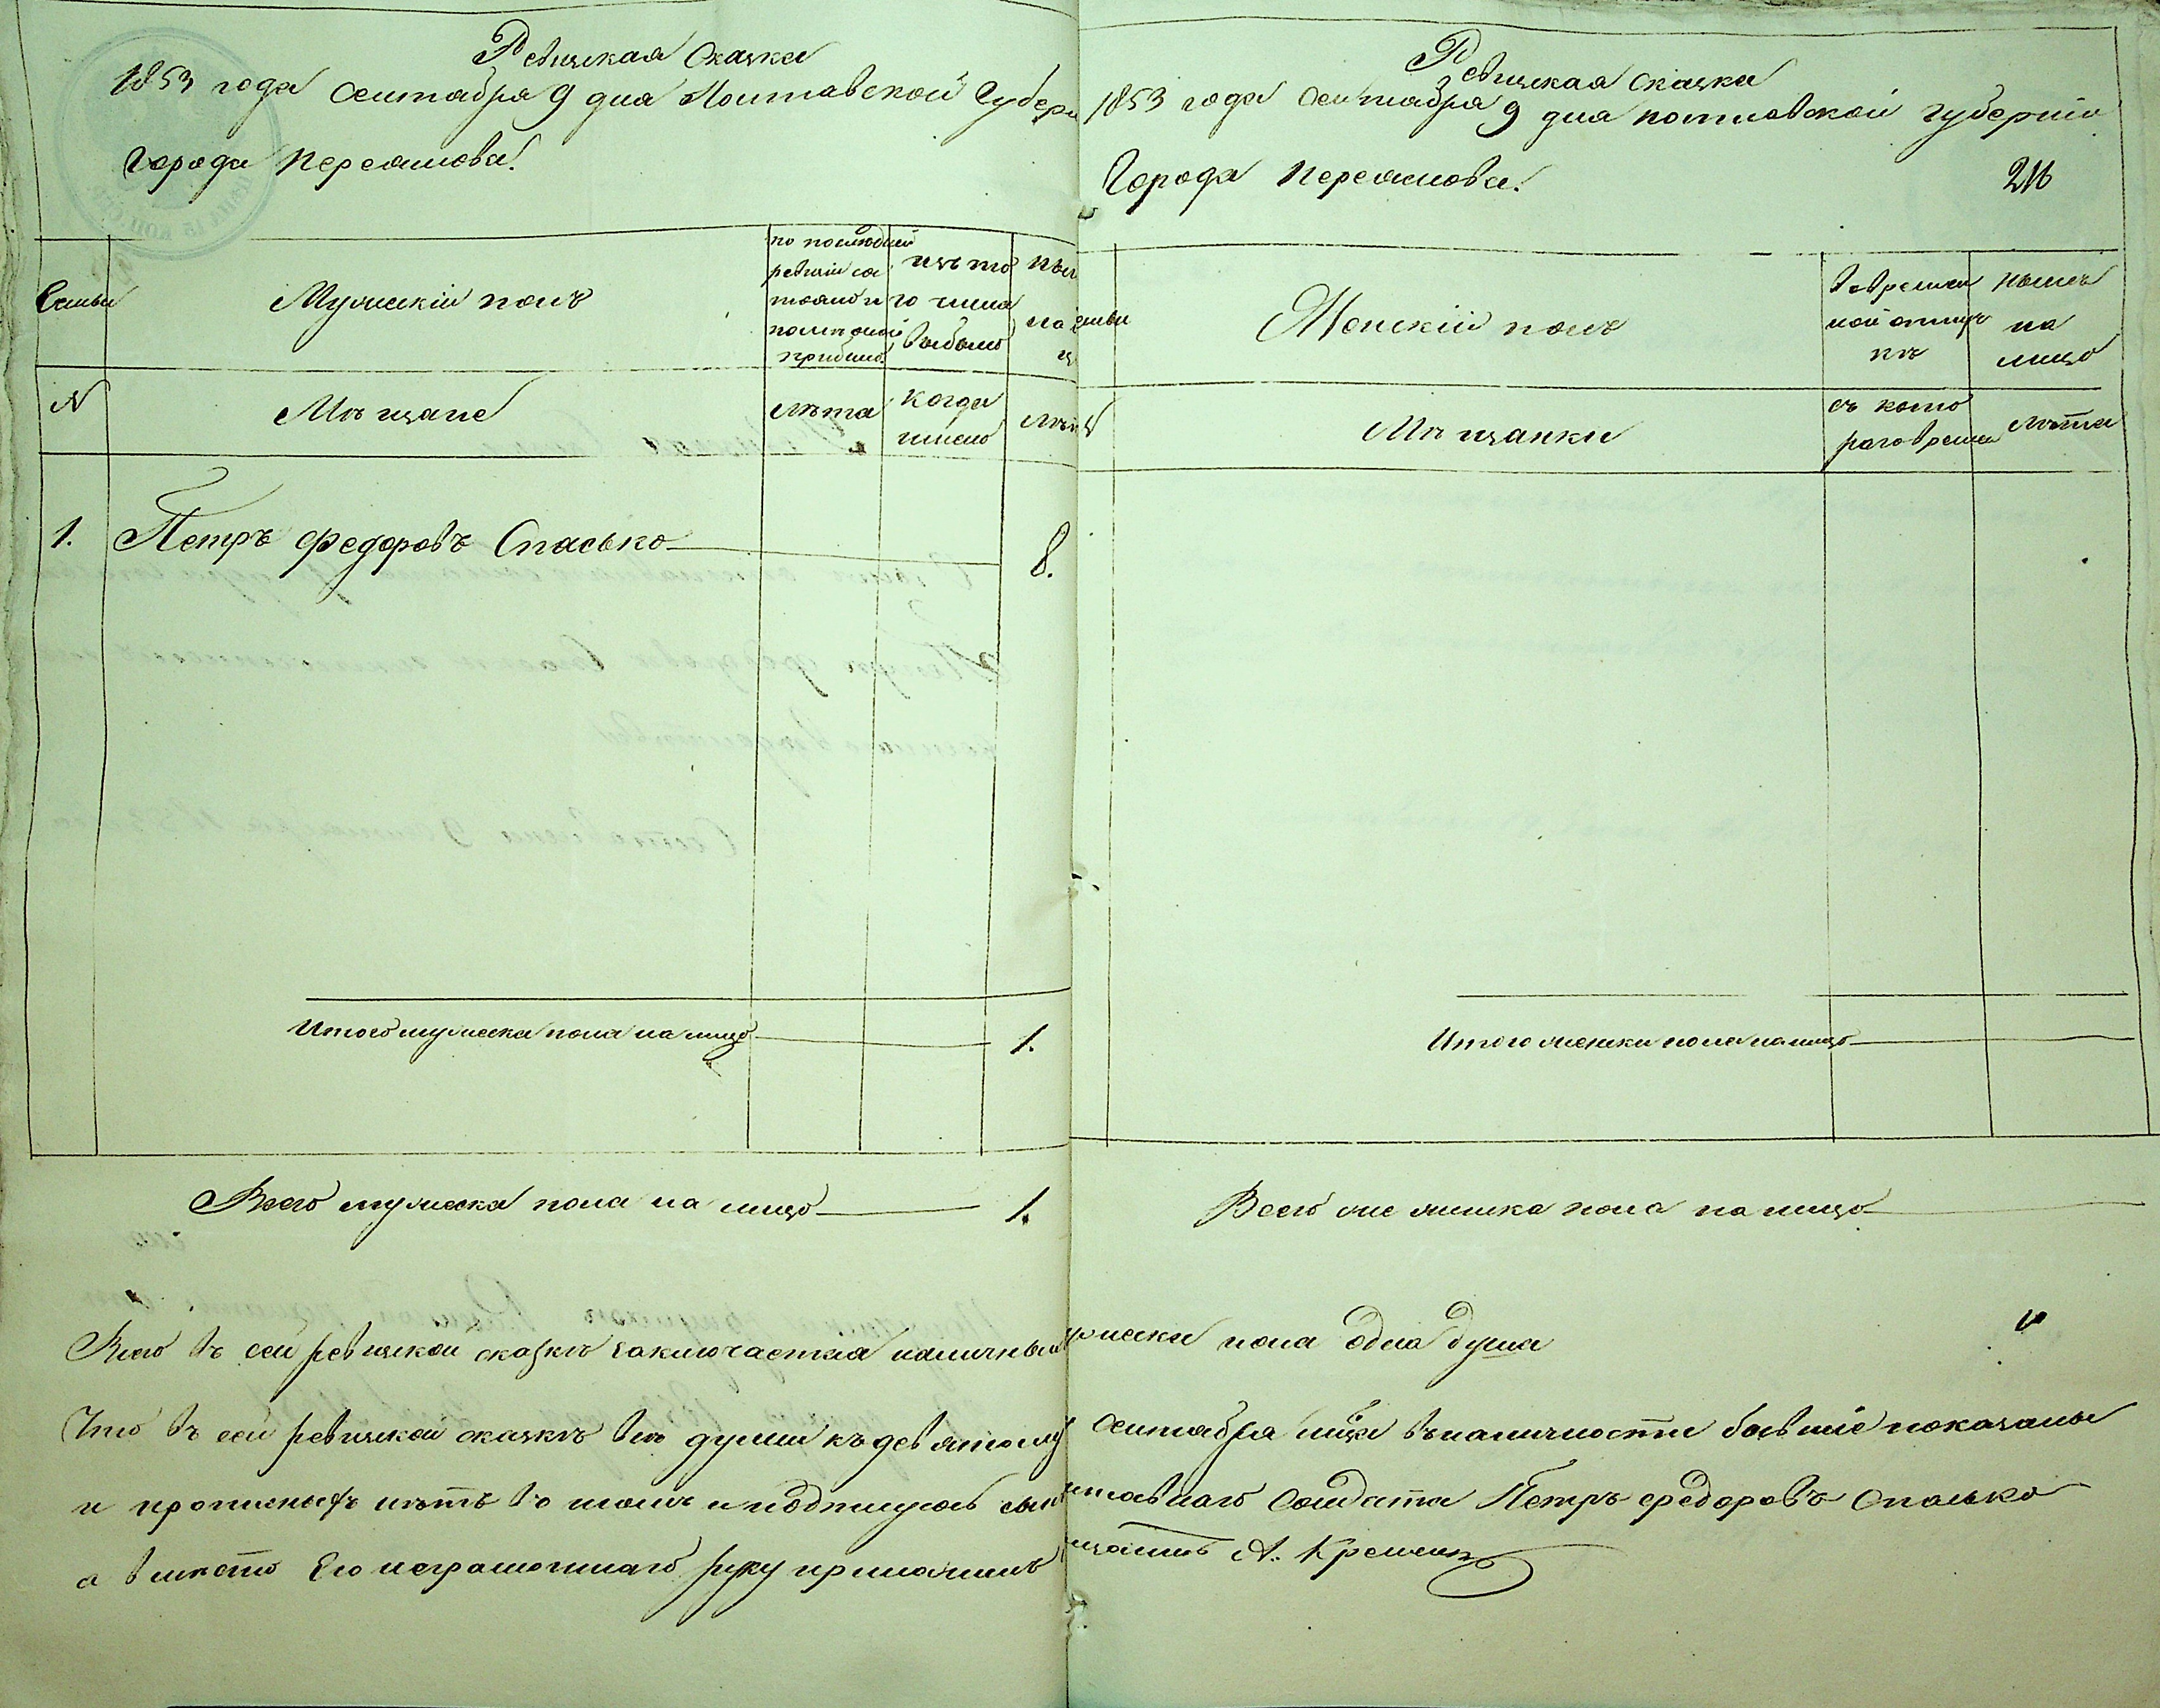 Ревизская сказка
1853 года сентября 9 дня Полтавской Губерн
Города Переяслова.
Семьи
Мужескій полъ
по последней
ревизіи со
тояло и
после оной
прибыло
изъ то
го числа
выбыло
ны
на
ц
N
Мѣщане
лѣта
когда
имено
лѣт
1. Петръ Федоровъ Спасько 8.
Итого мужеска пола на лицо 1.
Всего мужеска пола на лицо 1.
Ревизская сказка
1853 года Сентября 9 дня полтавской губерніи
Города Переяслова.
216
семьи
Женскій полъ
во времен
ной отлуч
кѣ
нынѣ
на
лицо
N
Мѣщанки
съ кото
раго времени
лѣта
Итого женска пола на лицо
Всего женска пола на лицо
Всего въ сей ревизской сказкѣ заключается наличных мужеска пола одна душа
Что въ сей ревизской сказкѣ все души къ девятому Сентября въ наличности бывшіе показаны
и прописныхъ нѣтъ въ томъ и подпишуюсь сын отставнаго Солдата Петръ Федоровъ Спасько
а вместо Его неграмотнаго руку приложилъ А.